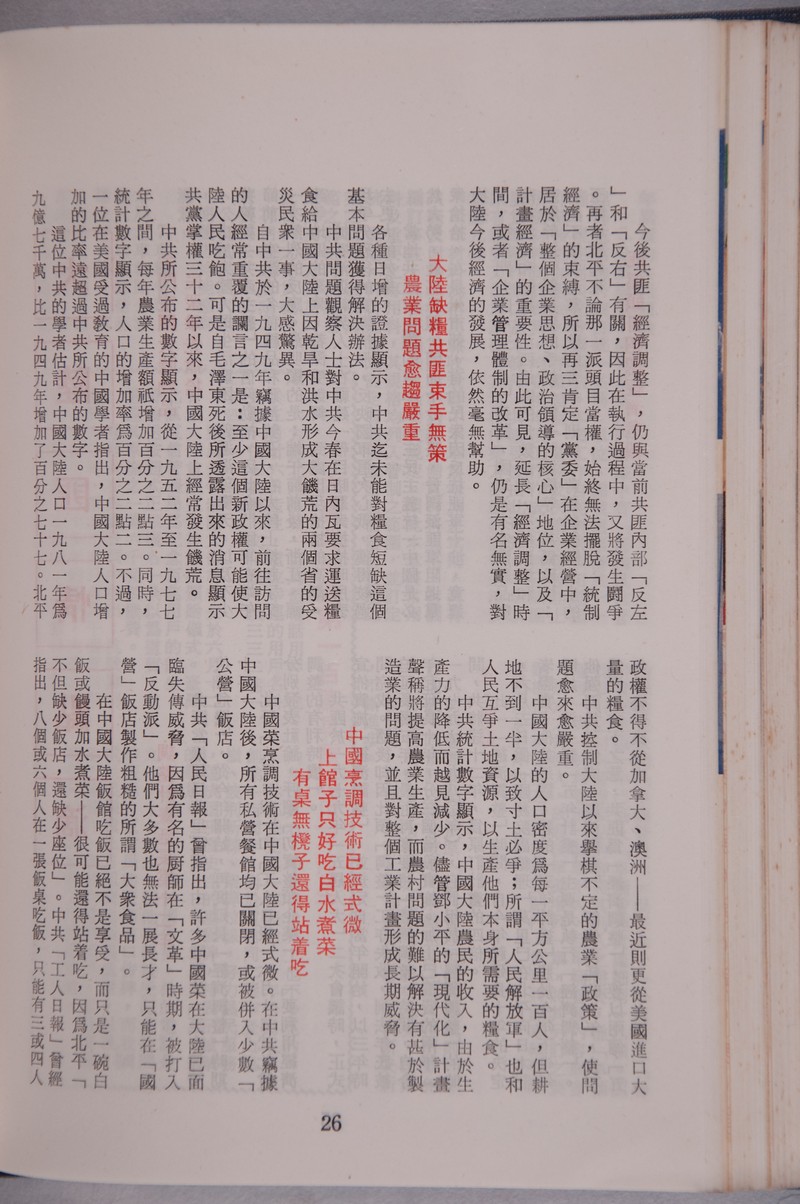 今後共匪「經濟調整」，仍與當前共匪內部「反左
」和「反右」有關，因此在執行過程中，又將發生鬪爭
。再者北平不論那一派頭目當權，始終無法擺脫「統制
經濟」的束縛，所以再三肯定「黨委」在企業經營中，
居於「整個企業思想、政治領導的核心」地位，以及「
計畫經濟」的重要性。由此可見，延長「經濟調整」時
間，或者「企業管理體制的改革」，仍是有名無實，對
大陸今後經濟的發展，依然毫無幫助。
大陸缺糧共匪束手無策
農業問題愈趨嚴重
各種日增的證據顯示，中共迄未能對糧食短缺這個
基本問題獲得解決辦法。
中共問題觀察人士對中共今春在日內瓦要求運送糧
食給中國大陸上因乾旱和洪水形成大饑荒的兩個省的受
災民衆一事，大感驚異。
自中共於一九四九年竊據中國大陸以來，前往訪問
的人經常重覆的讕言之一是：至少這個新政權可能使大
陸人民吃飽。可是自毛澤東死後所透露出來的消息顯示
共黨掌權三十二年以來，中國大陸上經常發生饑荒。
中共所公布的數字顯示，從一九五二年至一九七七
年之間，每年農業生產額祇增加百分之二點三。同時，
統計數字顯示，人口的增加率爲百分之二點二。不過，
一位在美國受過教育的中國學者指出，中國大陸人口增
加的比率遠超過中共所公布的數字。
這位中共的學者估計，中國大陸人口一九八一年爲
九億七千萬，比一九四九年增加了百分之七十七。北平
政權不得不從加拿大、澳洲——最近則更從美國進口大
量的糧食。
中共控制大陸以來擧棋不定的農業「政策」，使問
題愈來愈嚴重。
中國大陸的人口密度爲每一平方公里一百人，但耕
地不到一半，以致寸土必爭；所謂「人民解放軍」也和
人民互爭土地資源，以生產他們本身所需要的糧食。
中共統計數字顯示，中國大陸農民的收入，由於生
產力的降低而越見減少。儘管鄧小平的「現代化」計畫
聲稱將提高農業生產，而農村問題的難以解決有甚於製
造業的問題，並且對整個工業計畫形成長期威脅。
中國烹調技術已經式微
上館子只好吃白水煮菜
有桌無櫈子還得站着吃
中國菜烹調技術在中國大陸已經式微。在中共竊據
中國大陸後，所有私營餐館均已關閉，或被併入少數「
公營」飯店。
中共「人民日報」曾指出，許多中國菜在大陸已面
臨失傳威脅，因爲有名的厨師在「文革」時期，被打入
「反動派」。他們大多數也無法一展長才，只能在「國
營」飯店製作粗糙的所謂「大衆食品」。
在中國大陸飯館吃飯已絕不是享受，而只是一碗白
飯或饅頭加水煮菜——很可能還得站着吃，因爲北平「
不但缺少飯店，還缺少座位」。中共「工人日報」曾經
指出，八個或六個人在一張飯桌吃飯，只能有三或四人
26